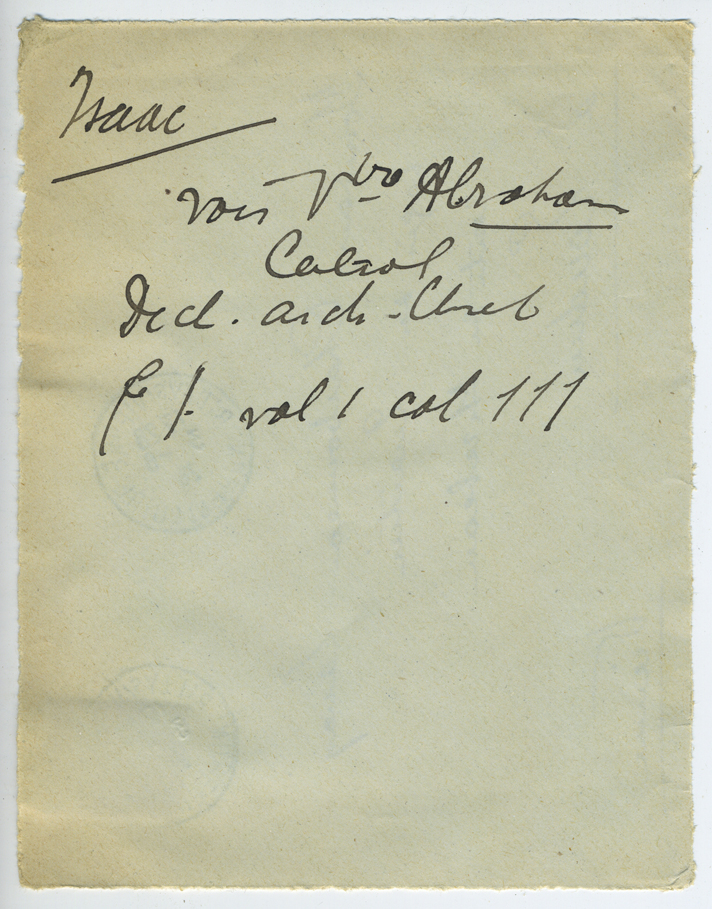 Isaac
voir Vbo Abraham
Cabrol
Dict. arch. Chret
& L. vol 1 col 111